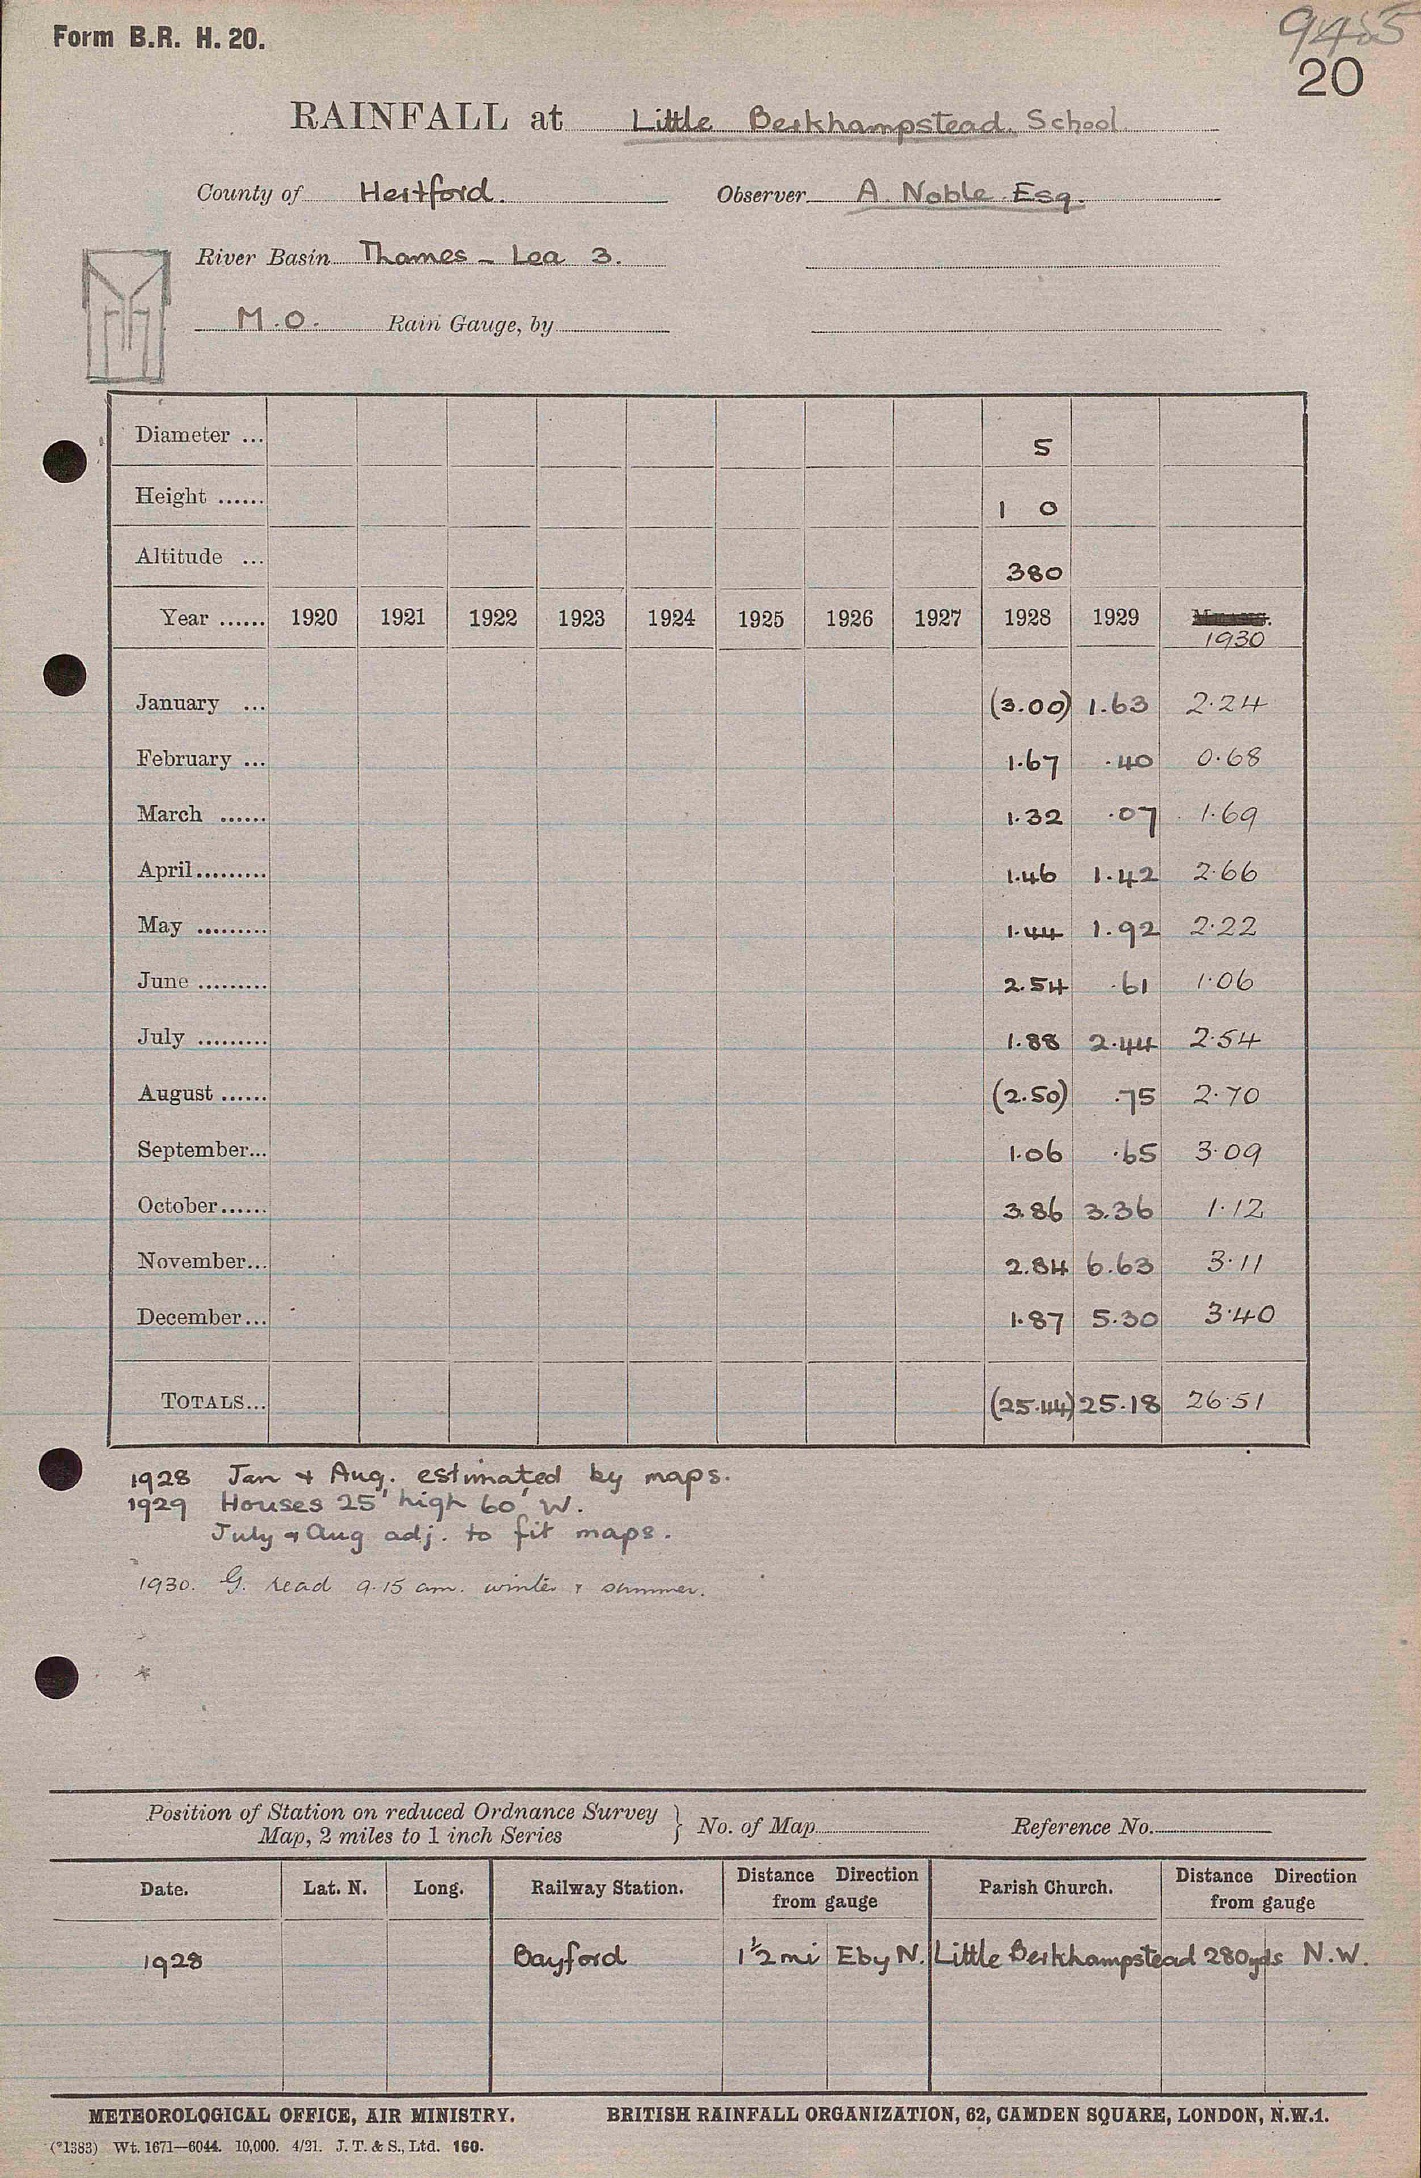 Form B.R. H. 20.
9485
20
RAINFALL at Little Berkhampstead. School.
County of Hertford. Observer A. Noble. Esq.
River Basin Thames - Lea 3.
M.O. Rain Gauge, by
Diameter ... 5
Height ...... 1 0
Altitude ... 380
Year ...... 1920 1921 1922 1923 1924 1925 1926 1927 1928 1929
1930
January ... (3.00) 1.63 2.24
February ... 1.67 .40 0.68
March ...... 1.32 .07 1.69
April......... 1.46 1.42 2.66
May ......... 1.44 1.92 2.22
June ......... 2.54 .61 1.06
July ......... 1.88 2.44 2.54
August ...... (2.50) .75 2.70
September... 1.06 .65 3.09
October...... 3.86 3.36 1.12
November... 2.84 6.63 3.11
December... 1.87 5.30 3.40
TOTALS... (25.44) 25.18 26.51
1928 Jan + Aug. estimated by maps.
1929 Houses 25' high 60' W.
July + Aug adj. to fit maps.
1930. G. read 9.15 am. winter + summer.
*
Position of Station on reduced Ordnance Survey
Map, 2 miles to 1 inch Series } No. of Map Reference No.
Date. Lat. N. Long. Railway Station. Distance Direction from gauge Parish Church. Distance Direction from gauge
1928 Bayford 1½ mi E by N. Little Berkhampstead 280yds N.W.
METEOROLOGICAL OFFICE, AIR MINISTRY. BRITISH RAINFALL ORGANIZATION, 62, CAMDEN SQUARE, LONDON, N.W.1.
(*1383) Wt. 1671—6044. 10,000. 4/21. J. T. & S., Ltd. 160.